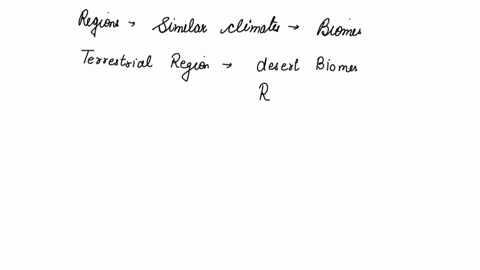 Regions → Similar climates → Biomes
Terrestrial Region → desert Biomes
R